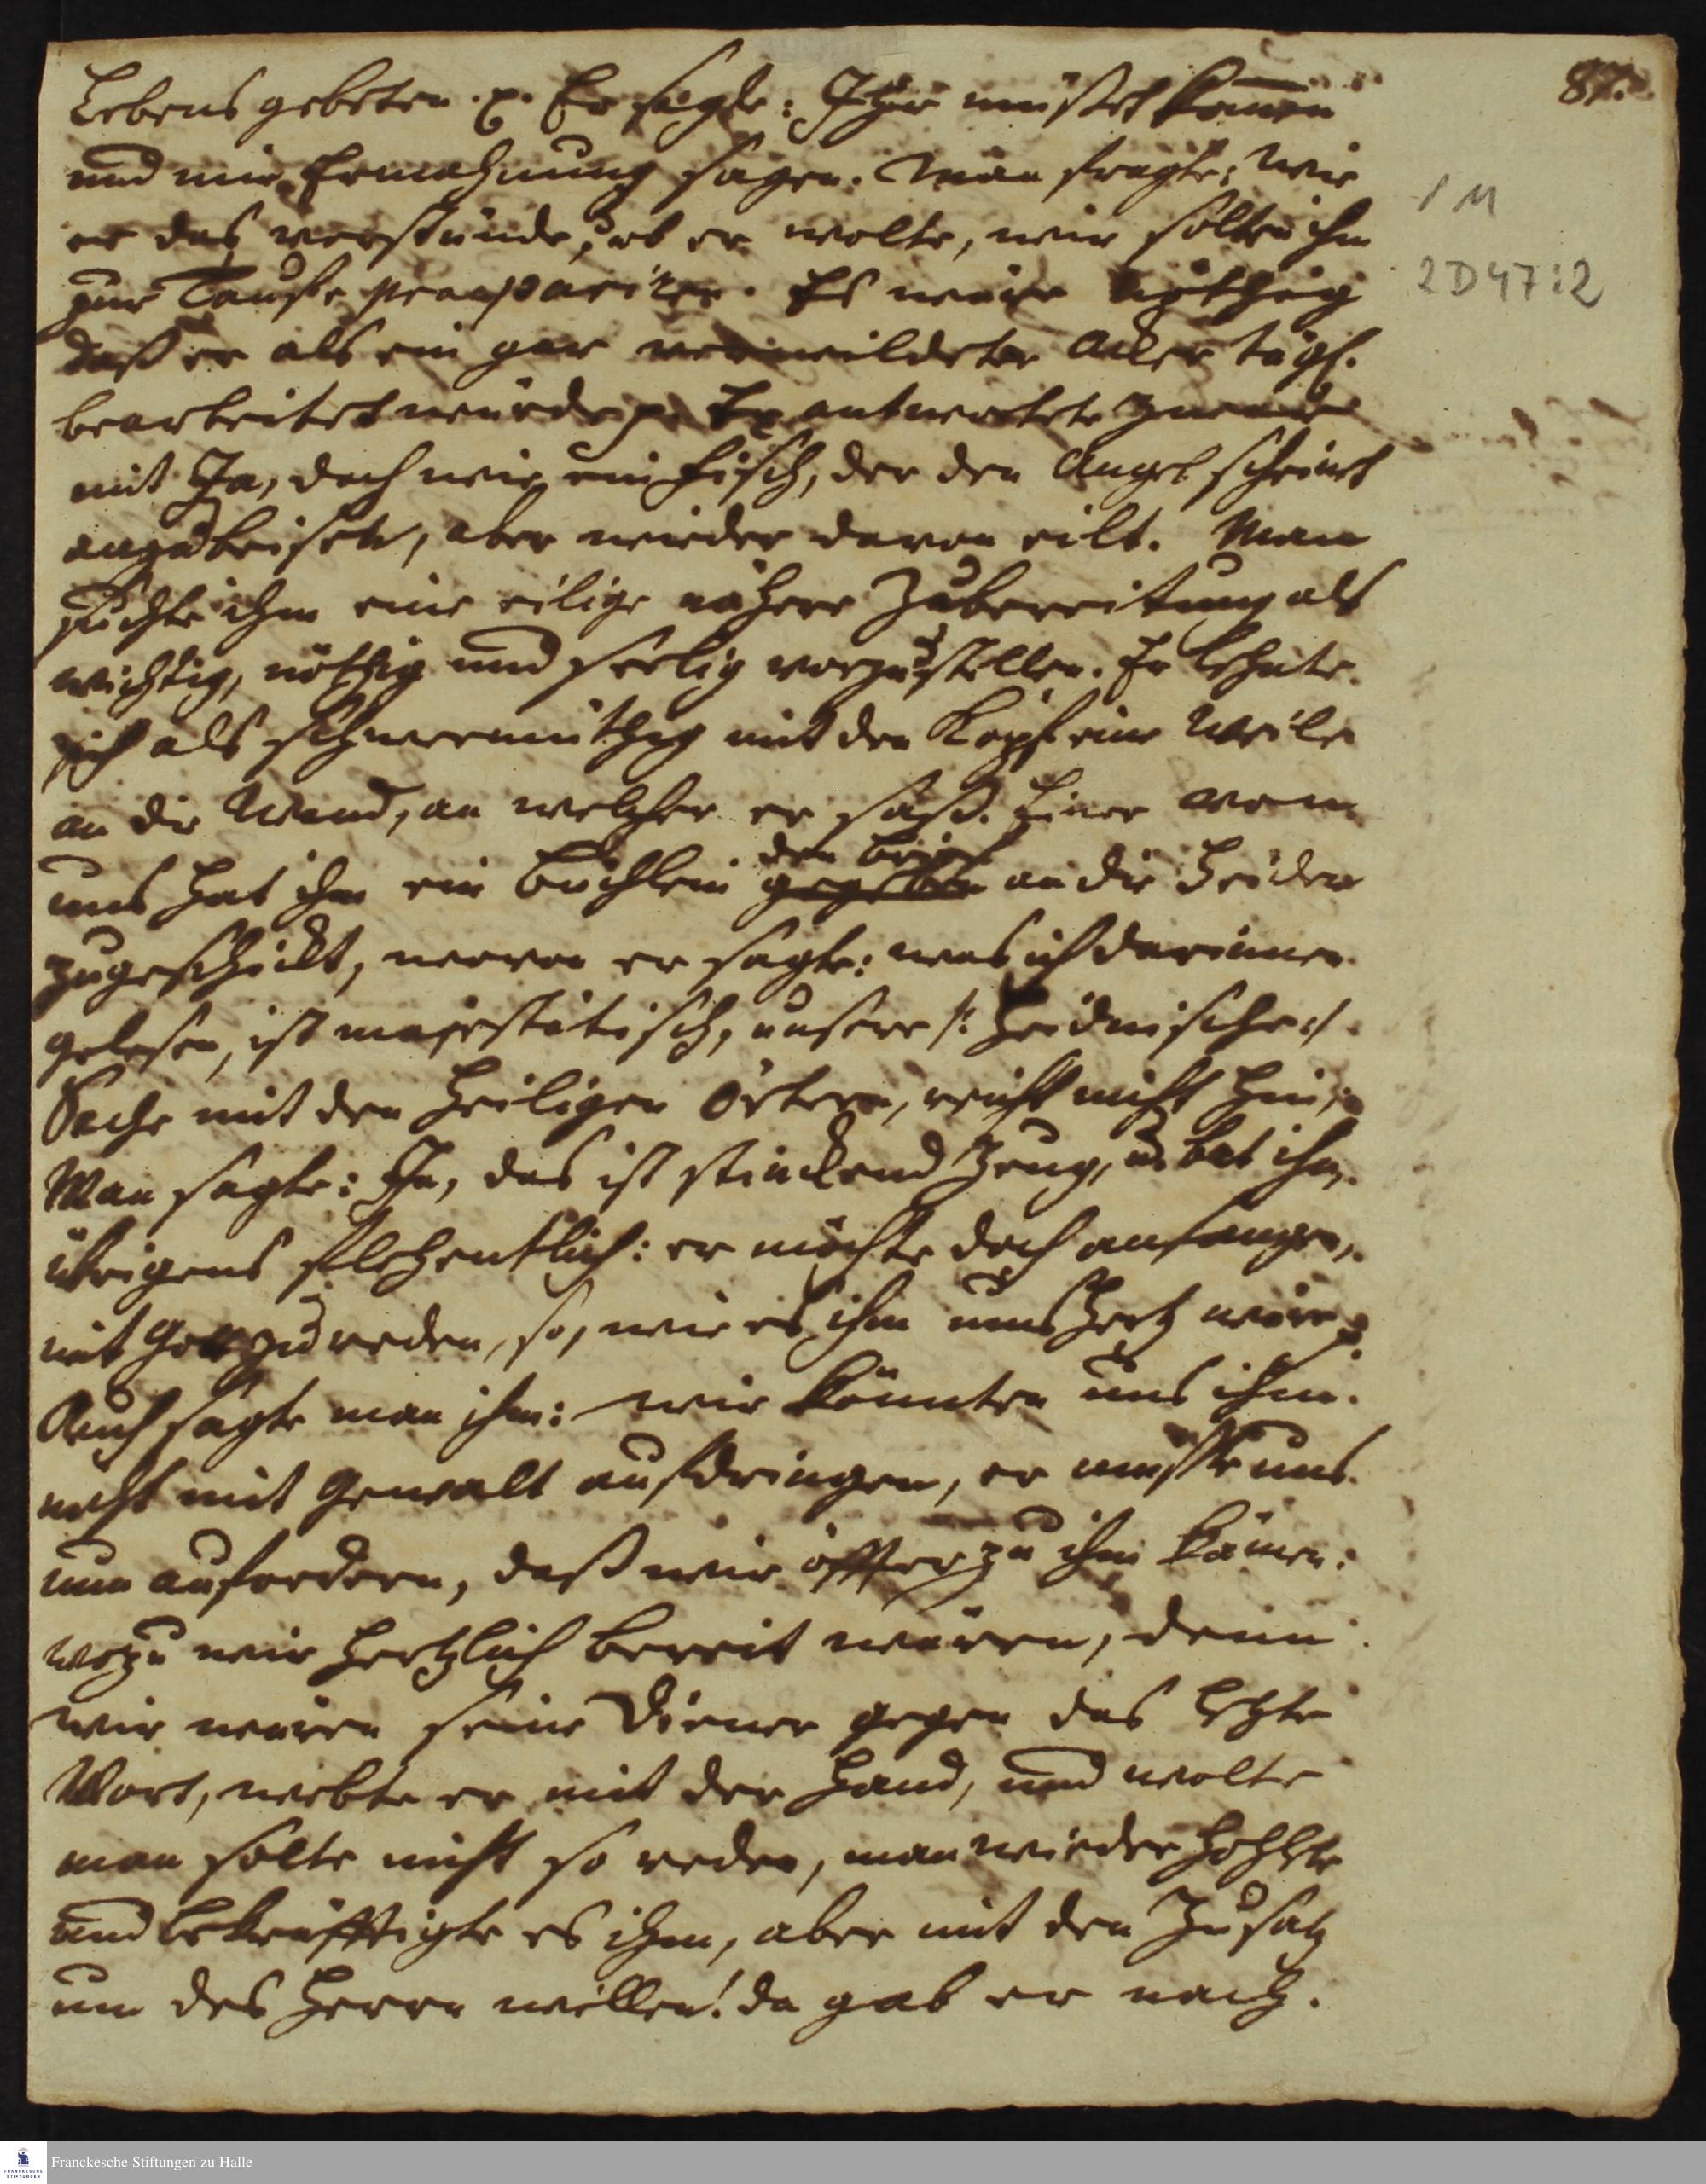 87.
Lebens gebeten. p. Er sagte: Ihr müßet kom̅en
und mir Ermahnung sagen. Man fragte: wie
er das verstünde, ob er wolte, wir solten ihn
zur Taufe praepariren. Es wäre nöthig
daß er als ein gar verwildeter Acker tägl.
bearbeitet würde p. Er antwortete zwar
mit Ja, doch wie ein Fisch, der den Angel scheint
anzubeisen, aber wieder davon eilt. Man
suchte ihm eine eilige nähere Zubereitung als
wichtig, nöthig und seelig vorzustellen. Er lehnte
sich als schwermüthig mit den Kopf eine Weile
an die Wand, an welcher er saß. Einer von
uns hat ihm ein Büchlein gegeben den Brief an die Heiden
zugeschickt, wovon er sagte: was ich darinnen
gelesen, ist majestätisch, unsere /: heidnische :/
Sache mit den heiligen Örtern, reicht nicht hin,
Man sagte: Ja, das ist stinckend Zeug, u. bat ihn,
übrigens flehentlich: er möchte doch anfangen,
mit Gott zu reden, so, wie es ihm ums Hertz wäre,
Auch sagte man ihm: wir könnten uns ihm
nicht mit Gewalt aufdringen, er müste uns
nun auffordern, daß wir öffter zu ihm kämen:
wozu wir hertzlich bereit wären, denn
wir wären seine Diener gegen das letzte
Wort, webte er mit der Hand, und wolte
man solte nicht so reden, man wiederhohlte
und bekräfftigte es ihm, aber mit den Zusatz
um des Herrn willen! da gab er nach.
1 M
2 D 47:2
Franckesche Stiftungen zu Halle